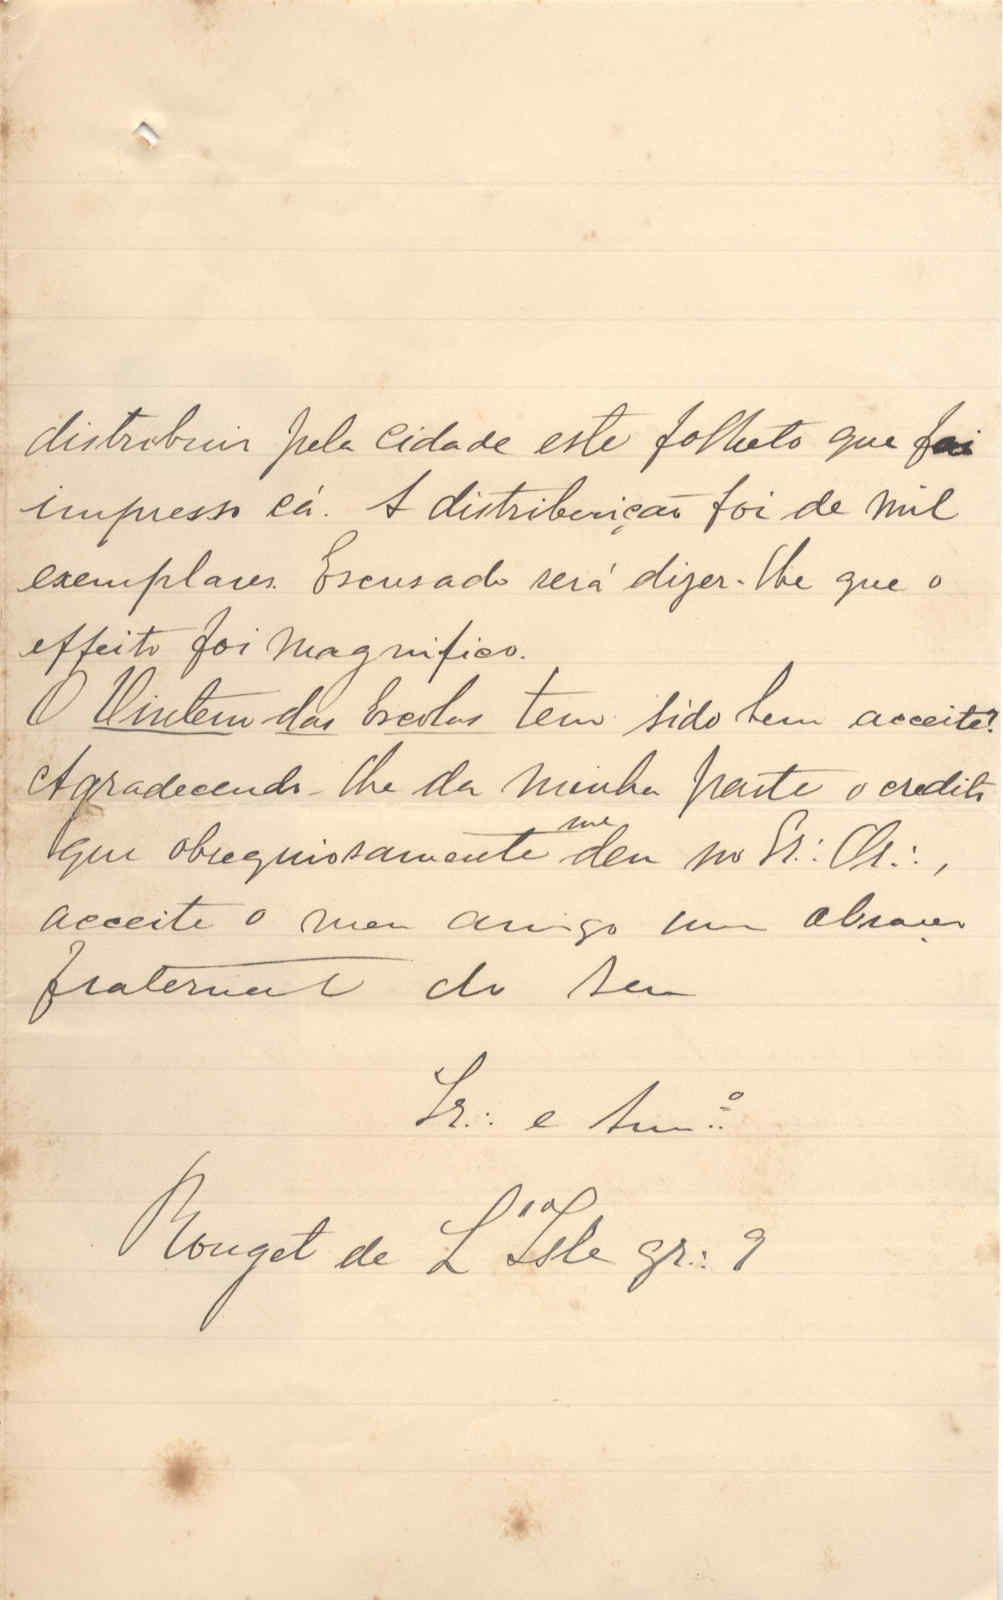 distribuir pela cidade este folheto que foi
impresso cá. A distribuição foi de mil
exemplares. Escusado será dizer-lhe que o
effeito foi magnifico.
O Vintem das Escolas tem sido bem acceite?
Agradecendo-lhe da minha parte o credito
que obsequiosamente me deu no Gr∴ Or∴,
acceite o meu amigo um abraço
fraternal do seu
Ir∴ e Am∴º
Rouget de L'Isle gr∴ 9